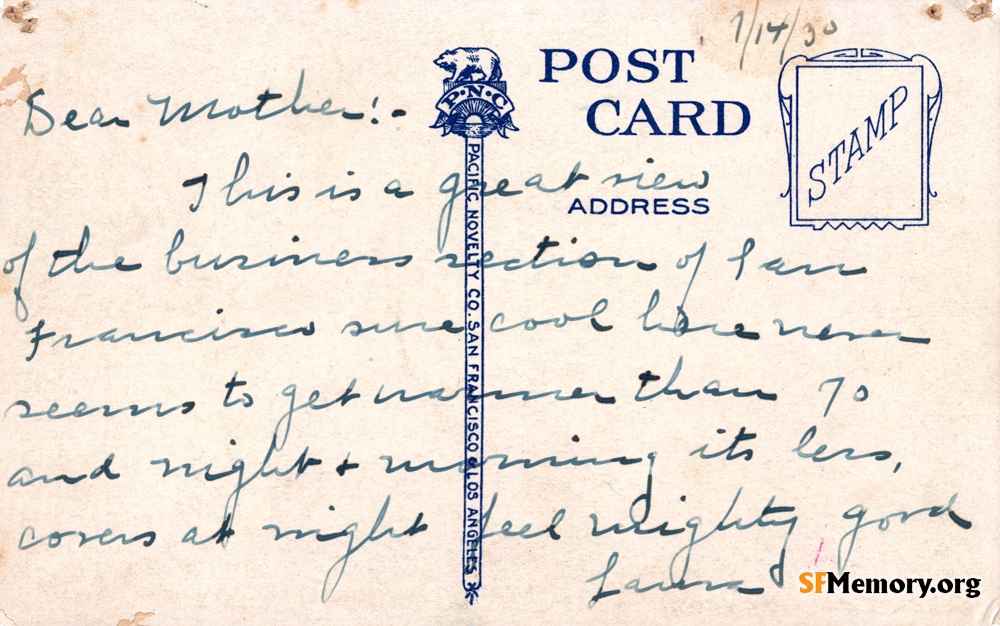 7/14/30
POST
CARD
P·N·C
STAMP
ADDRESS
PACIFIC NOVELTY CO. SAN FRANCISCO & LOS ANGELES
Dear Mother:-
This is a great view
of the business section of San
Francisco sure cool here never
seems to get warmer than 70
and night + morning its less,
covers at night feel mighty good
Laura
SFMemory.org